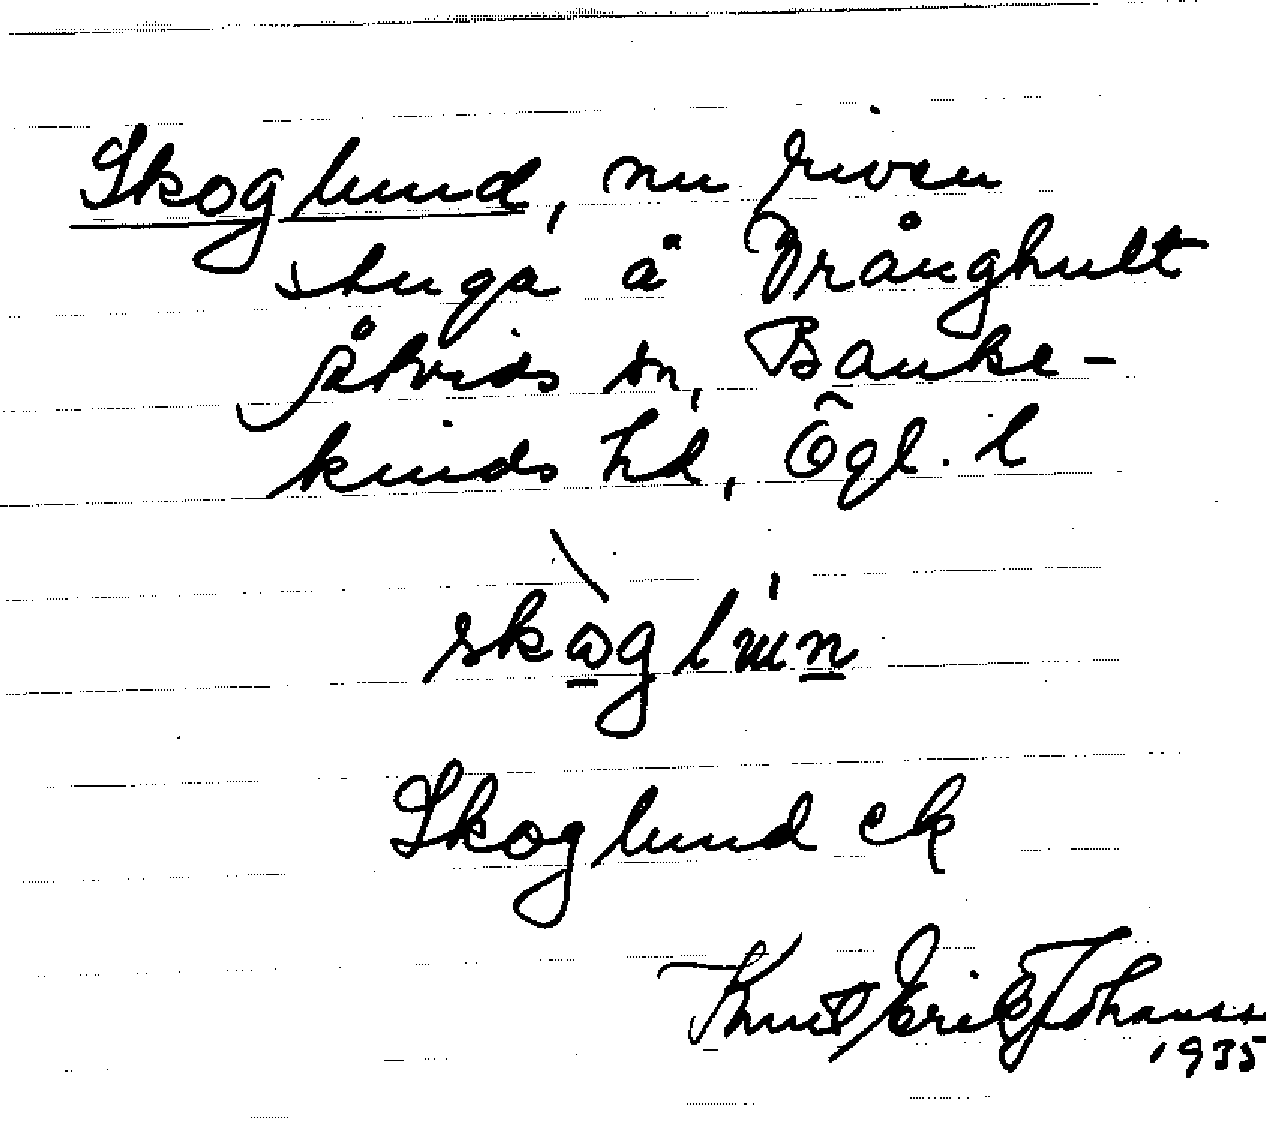 Skoglund, nu riven
stuga å Vrånghult
Åtvids sn, Banke-
kinds hd, Ögl. l
skòglun
Skoglund ek
Knut Erik Johanss
1935